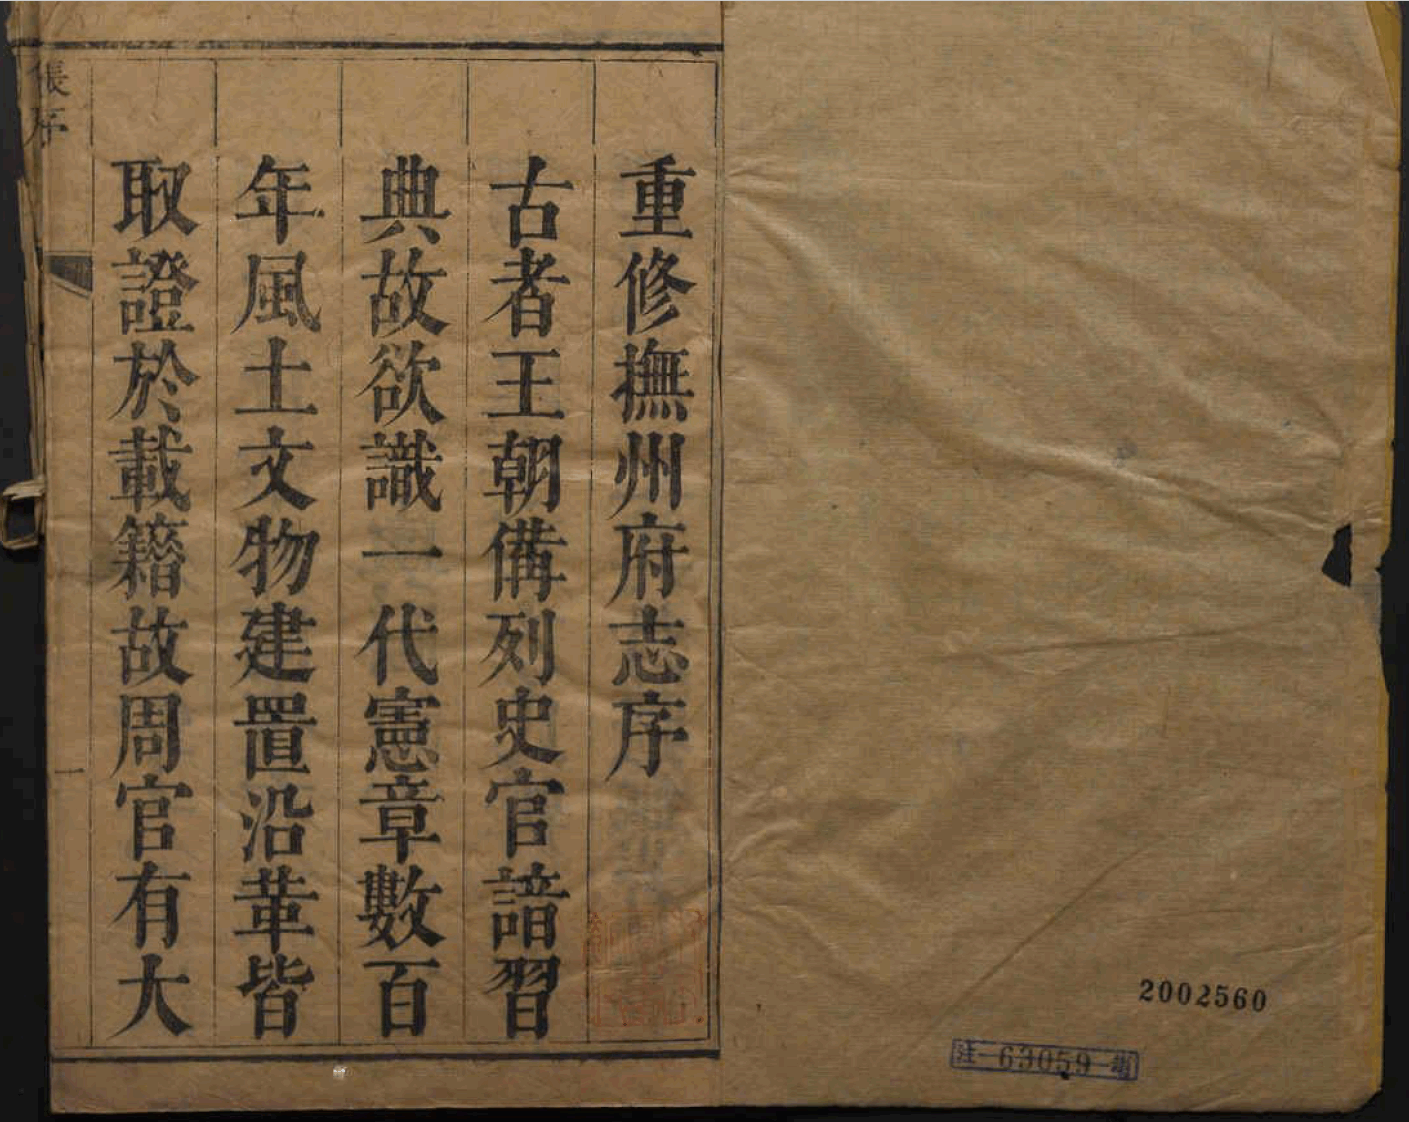 重修撫州府志序
古者王朝備列史官諳習
典故欲識一代憲章數百
年風土文物建置沿革皆
取證於載籍故周官有大
張序
一
2002560
63059